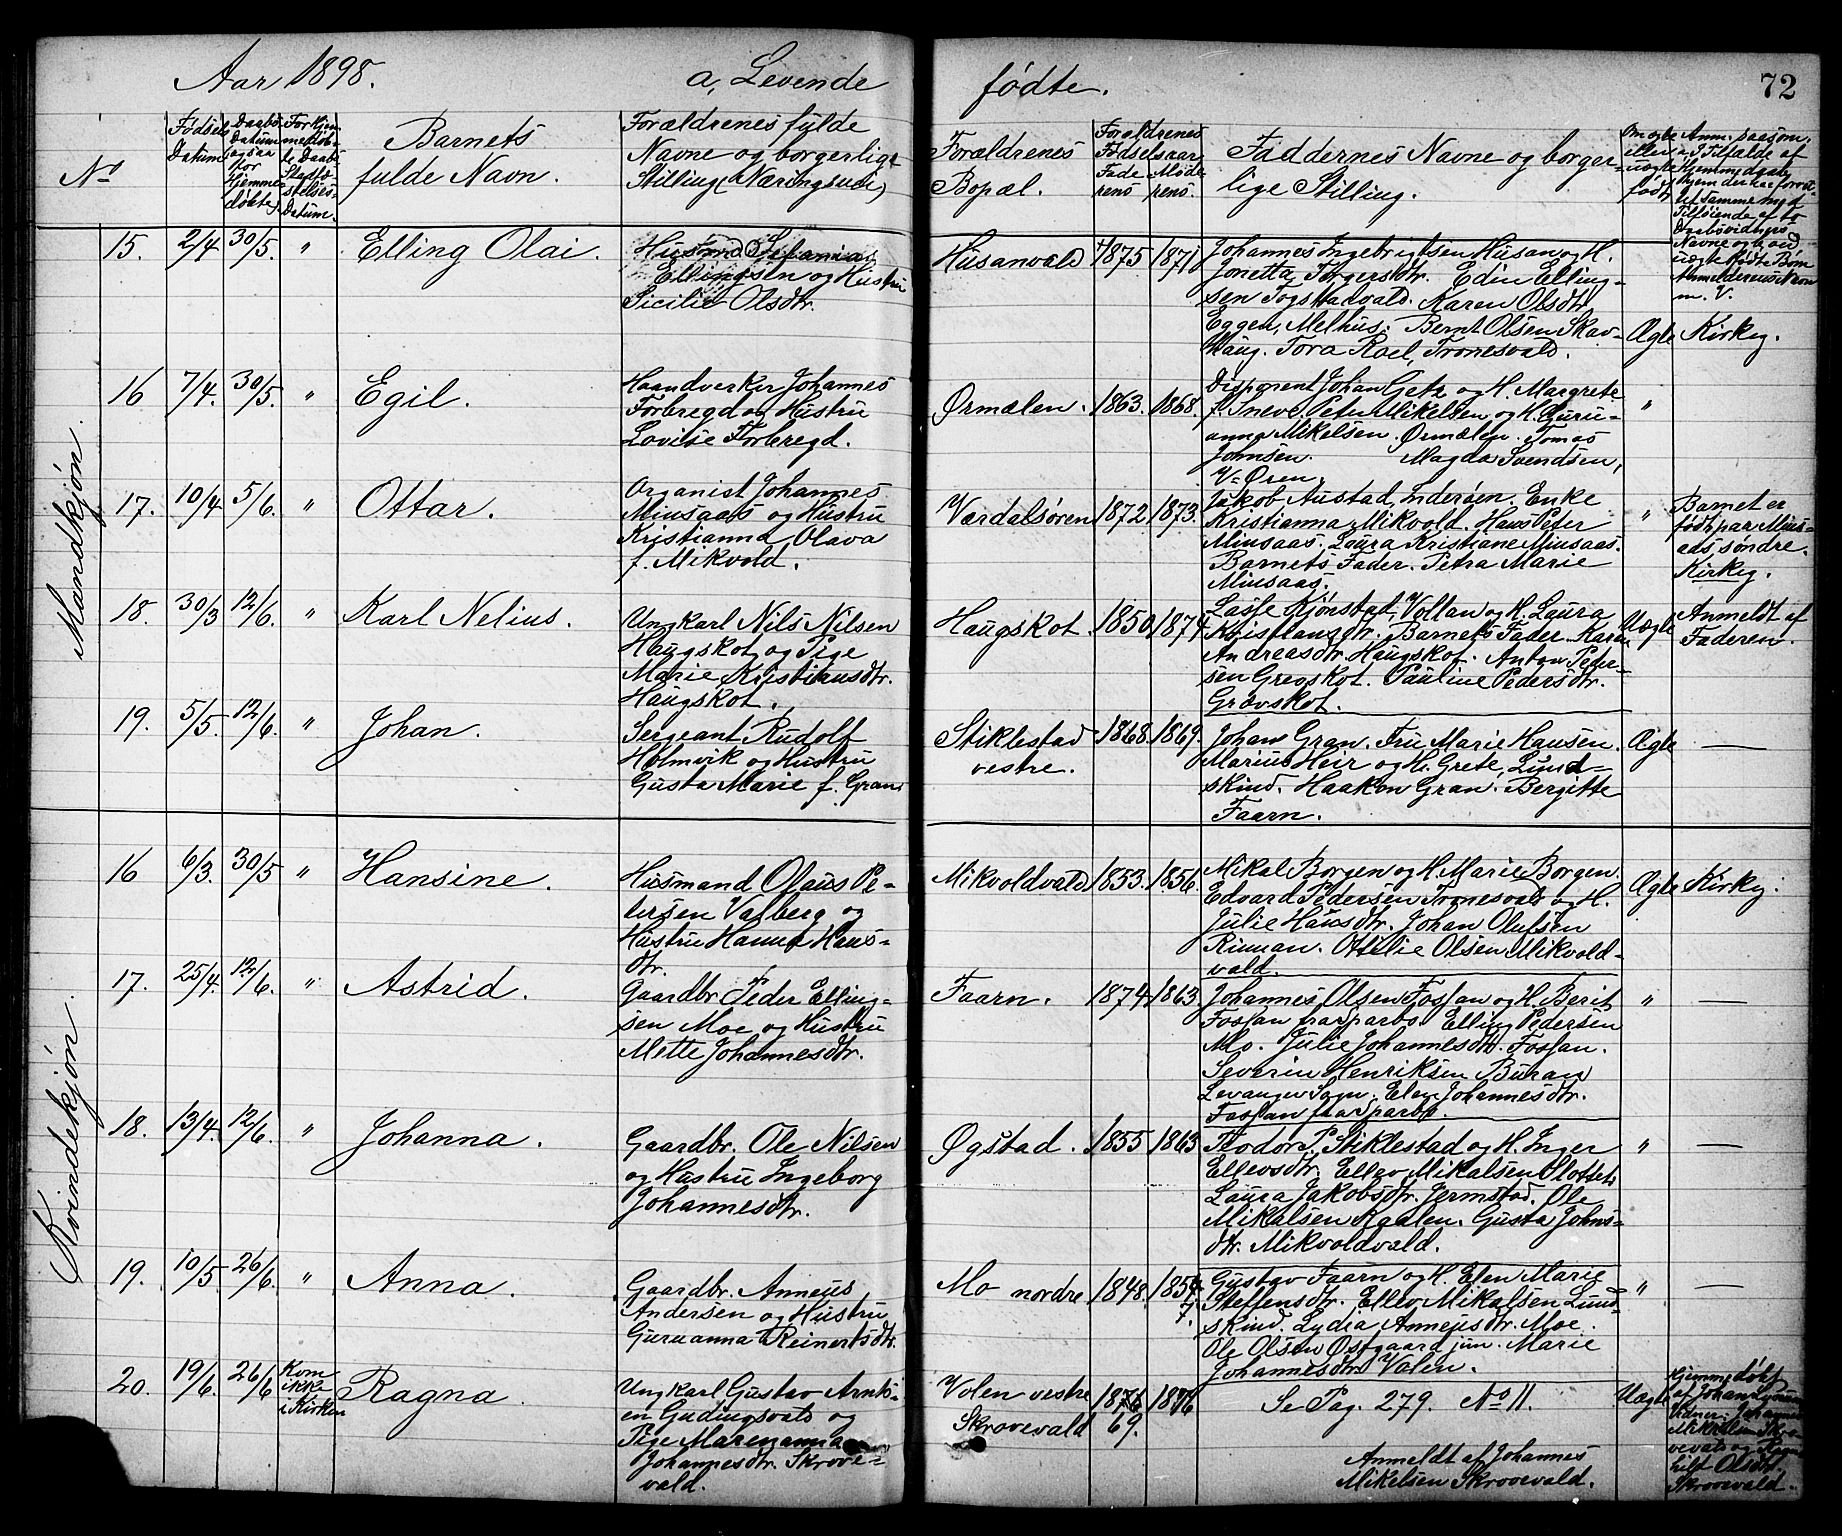 Aar 1898.
a, Levende
fødte.
72
No
Fødsels
Datum
Daabs
Datum
ogsaa
for
hjemme
døbte
Barnets
fulde Navn.
Forældrenes fylde
Navne og borgerlige
Stilling (Næringsvei)
Forældrenes
Bopæl.
Forældrenes
Fødselsaar
Fade
rens
Møde
rens.
Faddernes Navne og borger-
lige Stilling.
Om ægte
eller
uægte
født
Mandkjøn.
15. 2/4 30/5. " Elling Olai.
Husmd. Sefanias
Ellingsen og Hustru
Sicilie Olsdtr.
Husanvald 1875 1871
Johannes Ingebrigtsen Husan og H.
Jonetta Torgersdtr. Edin Elling-
sen Togstadvald. Karen Olsdtr.
Eggen, Melhus. Bernt Olsen Skav-
haug. Tora Roel, Tronesvald.
Ægte Kirkeg.
16 7/4. 30/5. " Egil.
Haandverker Johannes
Forbregd og Hustru
Lovise Forbregd.
Ørmælen. 1863. 1868.
Disponent Johan Getz og H. Margrete
f. Sneve. Peter Mikelsen og H. Guru-
anna Mikelsen. Ørmælen. Tomas
Johnsen. Magda Svendsen,
V-Øren.
"
17. 10/4 5/6. " Ottar.
Organist Johannes
Minsaas og Hustru
Kristianna Olava
f. Mikvold.
Værdalsøren 1872. 1873.
Jakob Austad, Inderøen. Enke
Kristianna Mikvold. Hans Peter
Minsaas. Laura Kristiane Minsaas.
Barnets Fader. Petra Marie
Minsaas.
" Barnet er
født paa Mins-
aas søndre.
Kirkeg.
18. 30/3 12/6. " Karl Nelius.
Ungkarl Nils Nilsen
Haugskot og Pige
Marie Kristiansdtr.
Haugskot.
Haugskot. 1850. 1874
Lasse Kjønstad, Vollan og H. Laura
Kristiansdtr. Barnets Fader. Karen
Andreasdtr. Haugskot. Anton Peder-
sen Grevskot. Pauline Pedersdtr.
Gravskot.
Uægte Anmeldt af
Faderen.
19. 5/5. 12/6. " Johan.
Sergeant Rudolf
Holmvik og Hustru
Gusta Marie f. Gran.
Stiklestad
vestre.
1868. 1869.
Johan Gran. Fru Marie Hansen.
Marius Heir og H. Grete, Lund-
skind. Haakon Gran. Bergitte
Faarn.
Ægte —
Kvindekjøn.
16 6/3. 30/5 " Hansine.
Husmand Olaus Pe-
tersen Valberg og
Hustru Hanna Hans-
dtr.
Mikvoldvald 1853. 1856.
Mikal Borgen og H. Marie Borgen.
Edvard Pedersen Tronesvald og H.
Julie Hansdtr. Johan Olufsen
Rinnan. Ottilie Olsen Mikvold-
vald.
Ægte Kirkeg.
17. 25/4. 12/6. " Astrid.
Gaardbr. Peder Elling-
sen Moe og Hustru
Mette Johannesdtr.
Faarn. 1874. 1863
Johannes Olsen Fossan og H. Berit
Fossan fra Sparbo. Elling Pedersen
Mo. Julie Johannesdtr. Fossan.
Severin Henriksen Buran
Levanger Sogn. Elen Johannesdtr.
Fossan fra Sparbo.
" —
18. 13/4. 12/6. " Johanna.
Gaardbr. Ole Nilsen
og Hustru Ingeborg
Johannesdtr.
Øgstad. 1855 1863
Teodor P. Stiklestad og H. Inger
Ellevsdtr. Ellev Mikalsen Slottet.
Laura Jakobsdtr. Jermstad. Ole
Mikalsen Kaalen. Gusta Johns-
dtr. Mikvoldvald.
" —
19. 10/5. 26/6. " Anna.
Gaardbr. Anneus
Andersen og Hustru
Guruanna Reinertsdtr.
Mo nordre 1848. 1854
Gustav Faarn og H. Elen Marie
Steffensdtr. Ellev Mikalsen Lund-
skind. Lydia Anneusdtr. Moe.
Ole Olsen Østgaard jun. Marie
Johannesdtr. Valen.
" —
20. 19/6. 26/6 Kom
ikke
i Kirken
Ragna.
Ungkarl Gustav Arnts-
en Gudingsvald og
Pige Marenanna
Johannesdtr. Skrove-
vald.
Volen vestre
Skrovevald
1876
69.
1876
Se Pag. 279. No 11.
Anmeldt af Johannes
Mikelsen Skrovevald.
Uægte
Hjemmedøbt
Skrovevald.